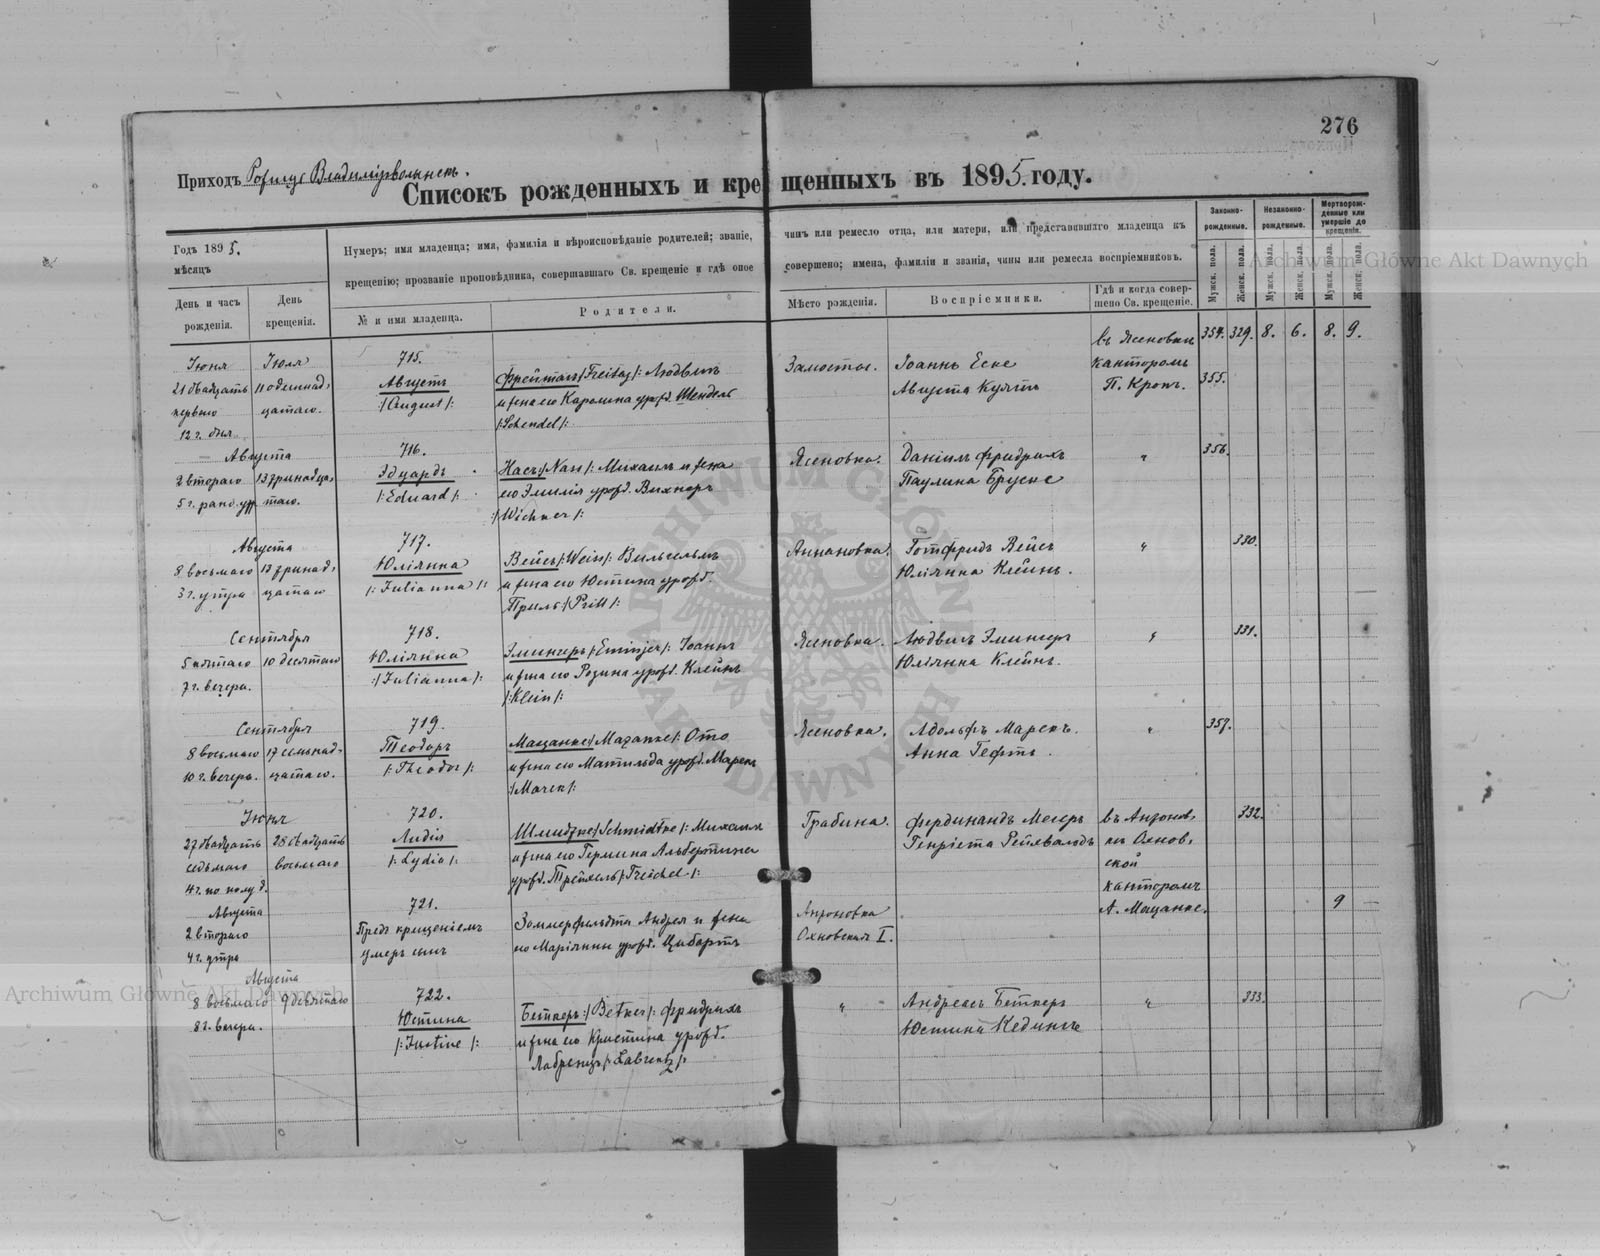 276
Приходъ Рожищe Владимірволынскъ.
Списокъ рожденныхъ и крещенныхъ въ 1895 году.
Годъ 1895.
мѣсяцъ
День и часъ рожденія.
День крещенія.
Нумеръ; имя младенца; имя, фамилія и вѣроисповѣданіе родителей; званіе, чинъ или ремесло отца, или матери, или представившаго младенца къ
крещенію; прозваніе проповѣдника, совершавшаго Св. крещеніе и гдѣ оное совершено; имена, фамиліи и званія, чины или ремесла воспріемниковъ.
№ и имя младенца.
Родители.
Мѣсто рожденія.
Воспріемники.
Гдѣ и когда совершено Св. крещеніе.
Законно-рожденные.
Незаконно-рожденные.
Мертворожденные или умершіе до крещенія.
Мужск. пола.
Женск. пола.
Мужск. пола.
Женск. пола.
Мужск. пола.
Женск. пола.
354. 329. 8. 6. 8. 9.
Іюня
21 двадцать
перваго
12 г. дня
Іюля
11 одиннад-
цатаго.
715.
Августъ
/:August:/
Фрейтагъ /:Freitag:/ Людвигъ
и жена его Каролина урожд. Шендель
/:Schendel:/
Замостье.
Іоаннъ Еске
Августа
въ Ясеновки
канторомъ
П. Кропъ.
355.
Августа
2 втораго
5 г.
13 тринадца-
таго.
716.
Эдуардъ
/:Eduard:/
Насъ /:Nass:/ Михаилъ и жена
его Эмилія урожд. Вихнеръ
/:Wichner:/
Ясеновка.
Даніилъ Фридрихъ
Паулина Бруске
"
356.
Августа
8 восьмаго
3 г. утра
13 тринад-
цатаго
717.
Юліянна
/:Julianna:/
Вейсъ /:Weiss:/ Вильгельмъ
и жена его Юстина урожд.
Приль /:Prill:/
Аннановка.
Готфридъ Вейсъ
Юліянна Клейнъ.
"
330.
Сентября
5 пятаго
7 г. вечера.
10 десятаго
718.
Юліянна
/:Julianna:/
Эмингеръ /:Eminger:/ Іоаннъ
и жена его Розина урожд. Клейнъ
/:Klein:/
Ясеновка.
Людвигъ Эмингеръ
Юліянна Клейнъ.
"
331.
Сентября
8 восьмаго
10 г. вечера.
17 семьнад-
цатаго.
719.
Теодоръ
/:Theodor:/
Мацанке /:Mazanke:/ Отто
и жена его Матильда урожд. Марекъ
/:Marek:/
Ясеновка.
Адольфъ Марекъ.
Анна Гефтъ.
"
357.
Іюня
27 двадцать
седьмаго
4 г. по полуд.
28 двадцать
восьмаго
720.
Лидія
/:Lydia:/
Шмидтке /:Schmidtke:/ Михаилъ
и жена его Гермина Альбертина
урожд. Трейхель /:Treichel:/
Грабина.
Фердинандъ Мегеръ
Генріета Рейхвальдъ
въ Антонов-
кѣ Охнов-
ской
канторомъ
А. Мацанке.
332.
Августа
2 втораго
4 г. утра
721.
Предъ крещеніемъ
умеръ сынъ
Зоммерфельдта Андрея и жена
его Маріянны урожд. Цибартъ
Антоновка
Охновская I.
9
Августа
8 восьмаго
8 г. вечера.
9 девятаго
722.
Юстина
/:Justine:/
Беткеръ /:Betker:/ Фридрихъ
и жена его Кристина урожд.
Лабренцъ /:Labrentz:/
"
Андреасъ Беткеръ
Юстина Кедингъ
"
333.
Archiwum Główne Akt Dawnych
Archiwum Główne Akt Dawnych
ARCHIWUM GŁÓWNE AKT DAWNYCH